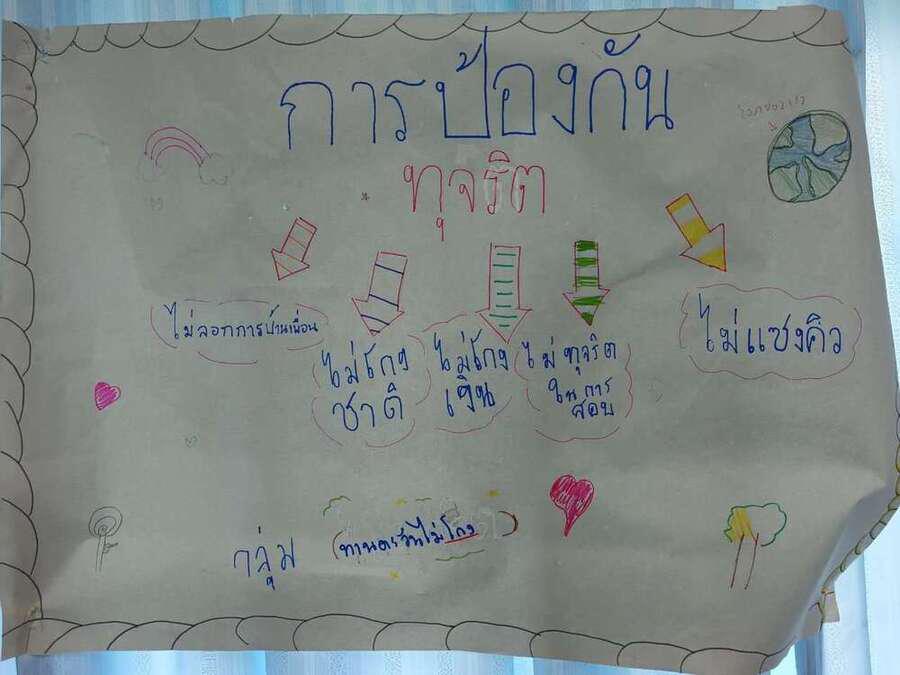 การป้องกัน
ทุจริต
ไม่ลอกการบ้านเพื่อน
ไม่โกง
ชาติ
ไม่โกง
เงิน
ไม่ทุจริต
ในการ
สอบ
ไม่แซงคิว
กลุ่ม
ทานตะวันไม่โกง